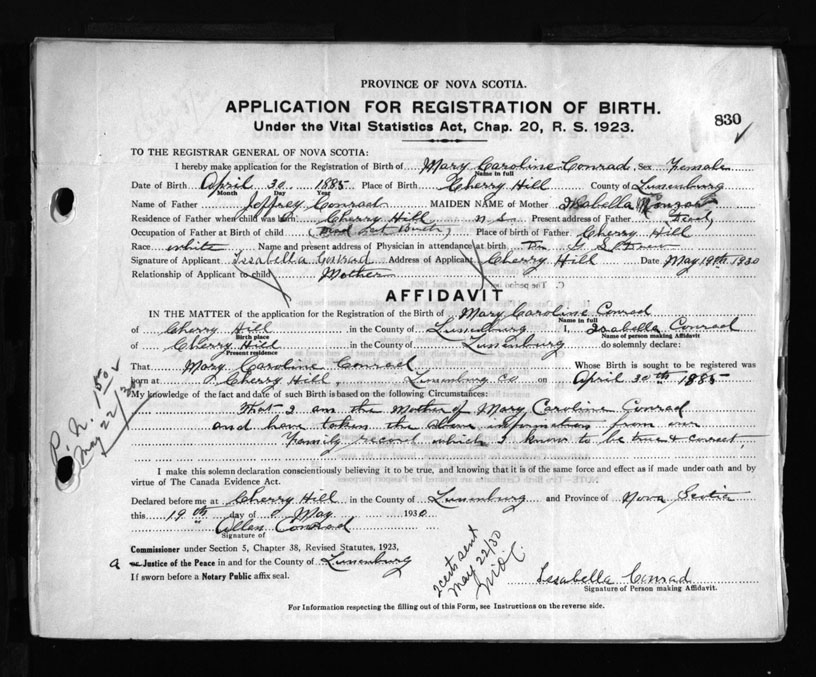 PROVINCE OF NOVA SCOTIA.
APPLICATION FOR REGISTRATION OF BIRTH.
Under the Vital Statistics Act, Chap. 20, R. S. 1923.
830
TO THE REGISTRAR GENERAL OF NOVA SCOTIA:
I hereby make application for the Registration of Birth of Mary Caroline Conrad Sex Female
Name in full
Date of Birth April 30 1885 Place of Birth Cherry Hill County of Lunenburg
Month Day Year
Name of Father Joffrey Conrad MAIDEN NAME of Mother Isabella Conrad
Residence of Father when child was born Cherry Hill N.S. Present address of Father Dead
Occupation of Father at Birth of child Place of birth of Father Cherry Hill
Race white Name and present address of Physician in attendance at birth
Signature of Applicant Issabella Conrad Address of Applicant Cherry Hill Date May 19th 1930
Relationship of Applicant to child Mother
AFFIDAVIT
IN THE MATTER of the application for the Registration of the Birth of Mary Caroline Conrad
Name in full
of Cherry Hill in the County of Lunenburg I, Isabella Conrad
Birth place Name of person making Affidavit
of Cherry Hill in the County of Lunenburg do solemnly declare:
Present residence
That Mary Caroline Conrad Whose Birth is sought to be registered was
born at Cherry Hill, Lunenburg Co on April 30th 1885
My knowledge of the fact and date of such Birth is based on the following Circumstances:
That I am the Mother of Mary Caroline Conrad
and have taken the above information from our
Family record which I know to be true & correct,
P.N. 1.50
May 22/30
I make this solemn declaration conscientiously believing it to be true, and knowing that it is of the same force and effect as if made under oath and by
virtue of The Canada Evidence Act.
Declared before me at Cherry Hill in the County of Lunenburg and Province of Nova Scotia
this 19th day of May 1930
Allen Conrad
Signature of
Commissioner under Section 5, Chapter 38, Revised Statutes, 1923,
a or Justice of the Peace in and for the County of Lunenburg
If sworn before a Notary Public affix seal.
2 certs sent
May 22/30
Issabella Conrad
Signature of Person making Affidavit.
For Information respecting the filling out of this Form, see Instructions on the reverse side.